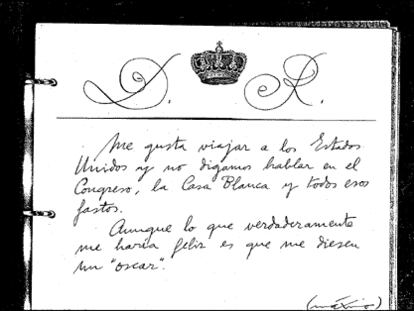 D. R.
Me gusta viajar a los Estados
Unidos y no digamos hablar en el
Congreso, la Casa Blanca y todos esos
fastos.
Aunque lo que verdaderamente
me haría feliz es que me diesen
un "oscar".
(máximo)